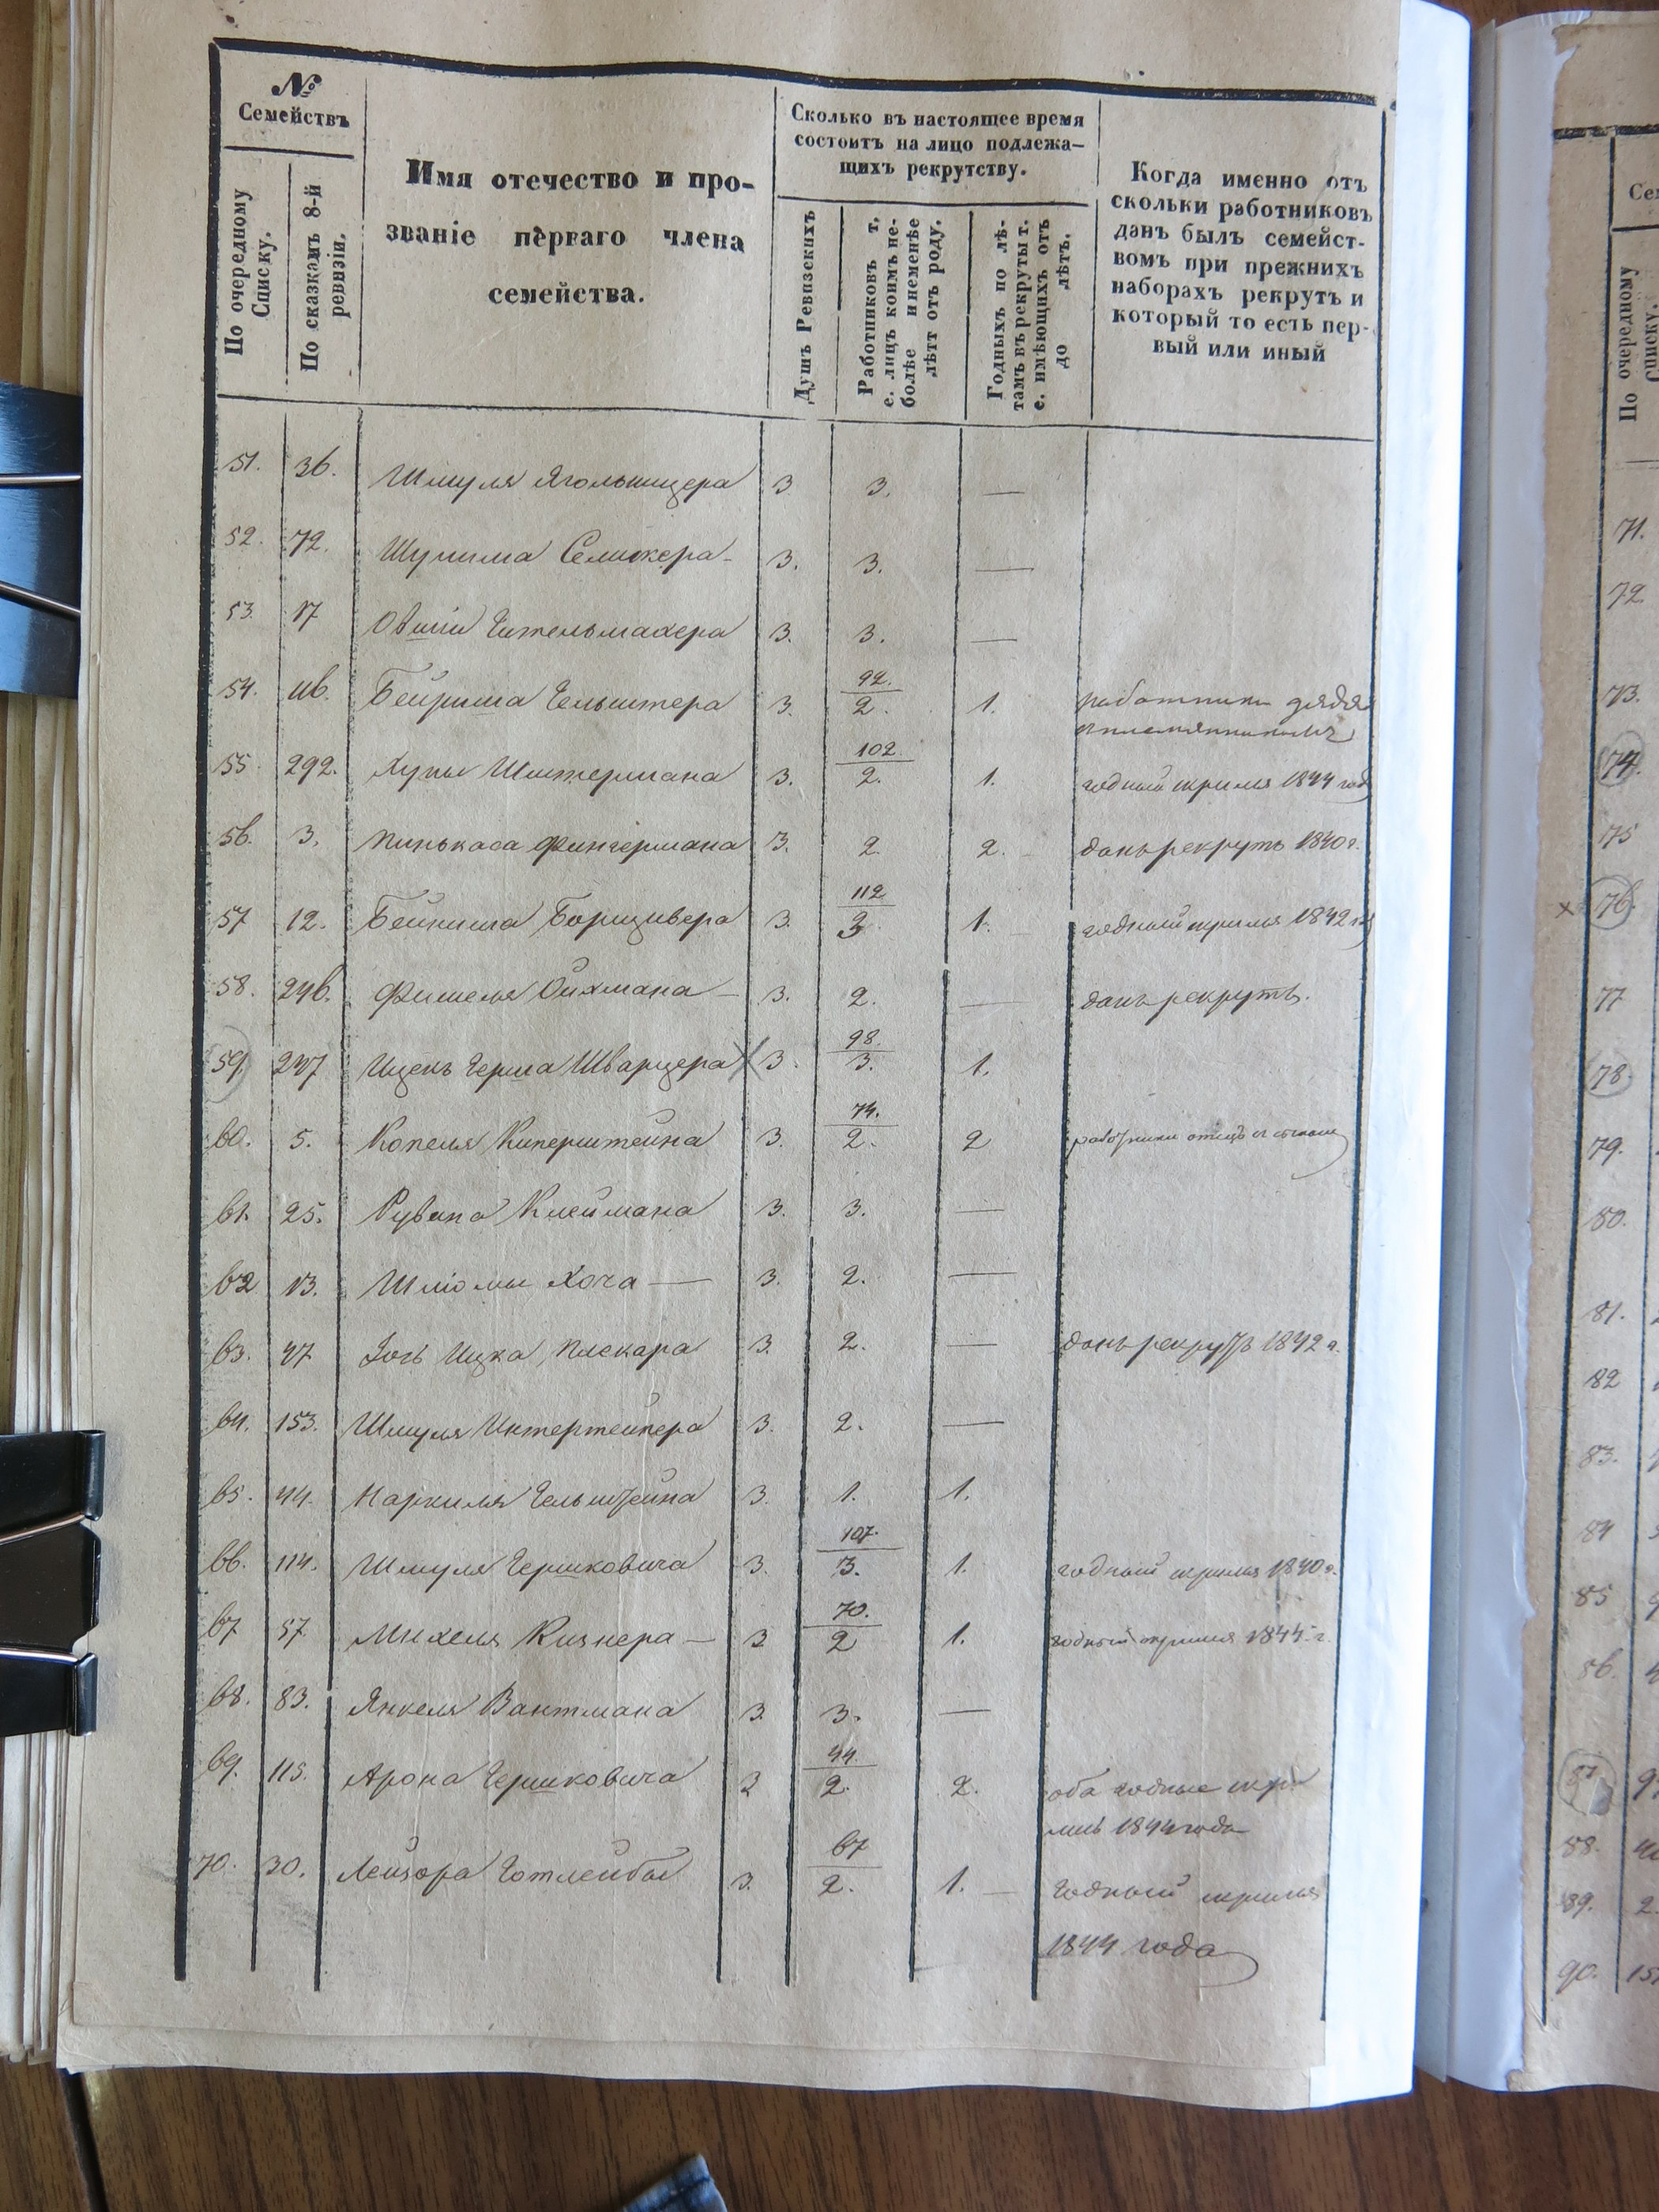 №
Семействъ
По очередному Списку.
По сказкамъ 8-й ревизіи.
Имя отечество и про-
званіе перваго члена
семейства.
Сколько въ настоящее время
состоитъ на лицо подлежа-
щихъ рекрутству.
Душъ Ревизскихъ
Работниковъ т.
е. лицъ коимъ не-
болѣе и неменѣе
лѣтт отъ роду.
Годныхъ по лѣ-
тамъ въ рекруты т.
е. имѣющихъ отъ
до лѣтъ.
Когда именно отъ
сколькиработниковъ
данъ былъ семейст-
вомъ при прежнихъ
наборахъ рекрутъ и
который то есть пер-
вый или иный
51. 36. Шмуля Ягольницера 3 3. —
52. 72. 3. 3. —
53. 17 Овшіи Гительмахера 3. 3. —
54. 116. Бейриша Гельштера 3. 92. 2. 1. работники дядя
съ племянникомъ
55. 292. Хуны 3. 102. 2. 1. годный 1844 год
56. 3. Пинькаса Фингермана 3. 2. 2. данъ рекрутъ 1840 г.
57 12. Бейниша Борщивера 3. 112 3 1. годный 1842 г.
58. 246. Фишеля Ойхмана — 3. 2. — данъ рекрутъ.
59. 247 Ицекъ Герша Шварцера 3. 98. 3. 1.
60. 5. Копеля Киперштейна 3. 74. 2. 2 работники отецъ съ сыномъ
61. 25. Рувина Клеймана 3. 3. —
62 13. Шліомы Хоча — 3. 2. —
63. 47 Іось Ицка Плскара 3. 2. — данъ рекрутъ 1842 г.
64. 153. Шмуля 3. 2. —
65. 44. Наркиля Гельштейна 3. 1. 1.
66. 114. Шмуля Гершковича 3. 107. 3. 1. годный 1840 г.
67 57. Михеля Кизнера — 3 70. 2 1. годный 1844 г.
68. 83. Янкеля Вантмана 3. 3. —
69. 115. Арона Гершковича 3 44. 2. 2. оба годные
1844 года
70. 30. Лейзора Готлейбы 3. 67 2. 1. — годный
1844 года
Сем
По очередному
Списку.
71.
72
73.
74.
75
76.
77
78.
79.
80.
81.
82
83.
84
85
86.
87
88.
89. 2.
90. 15